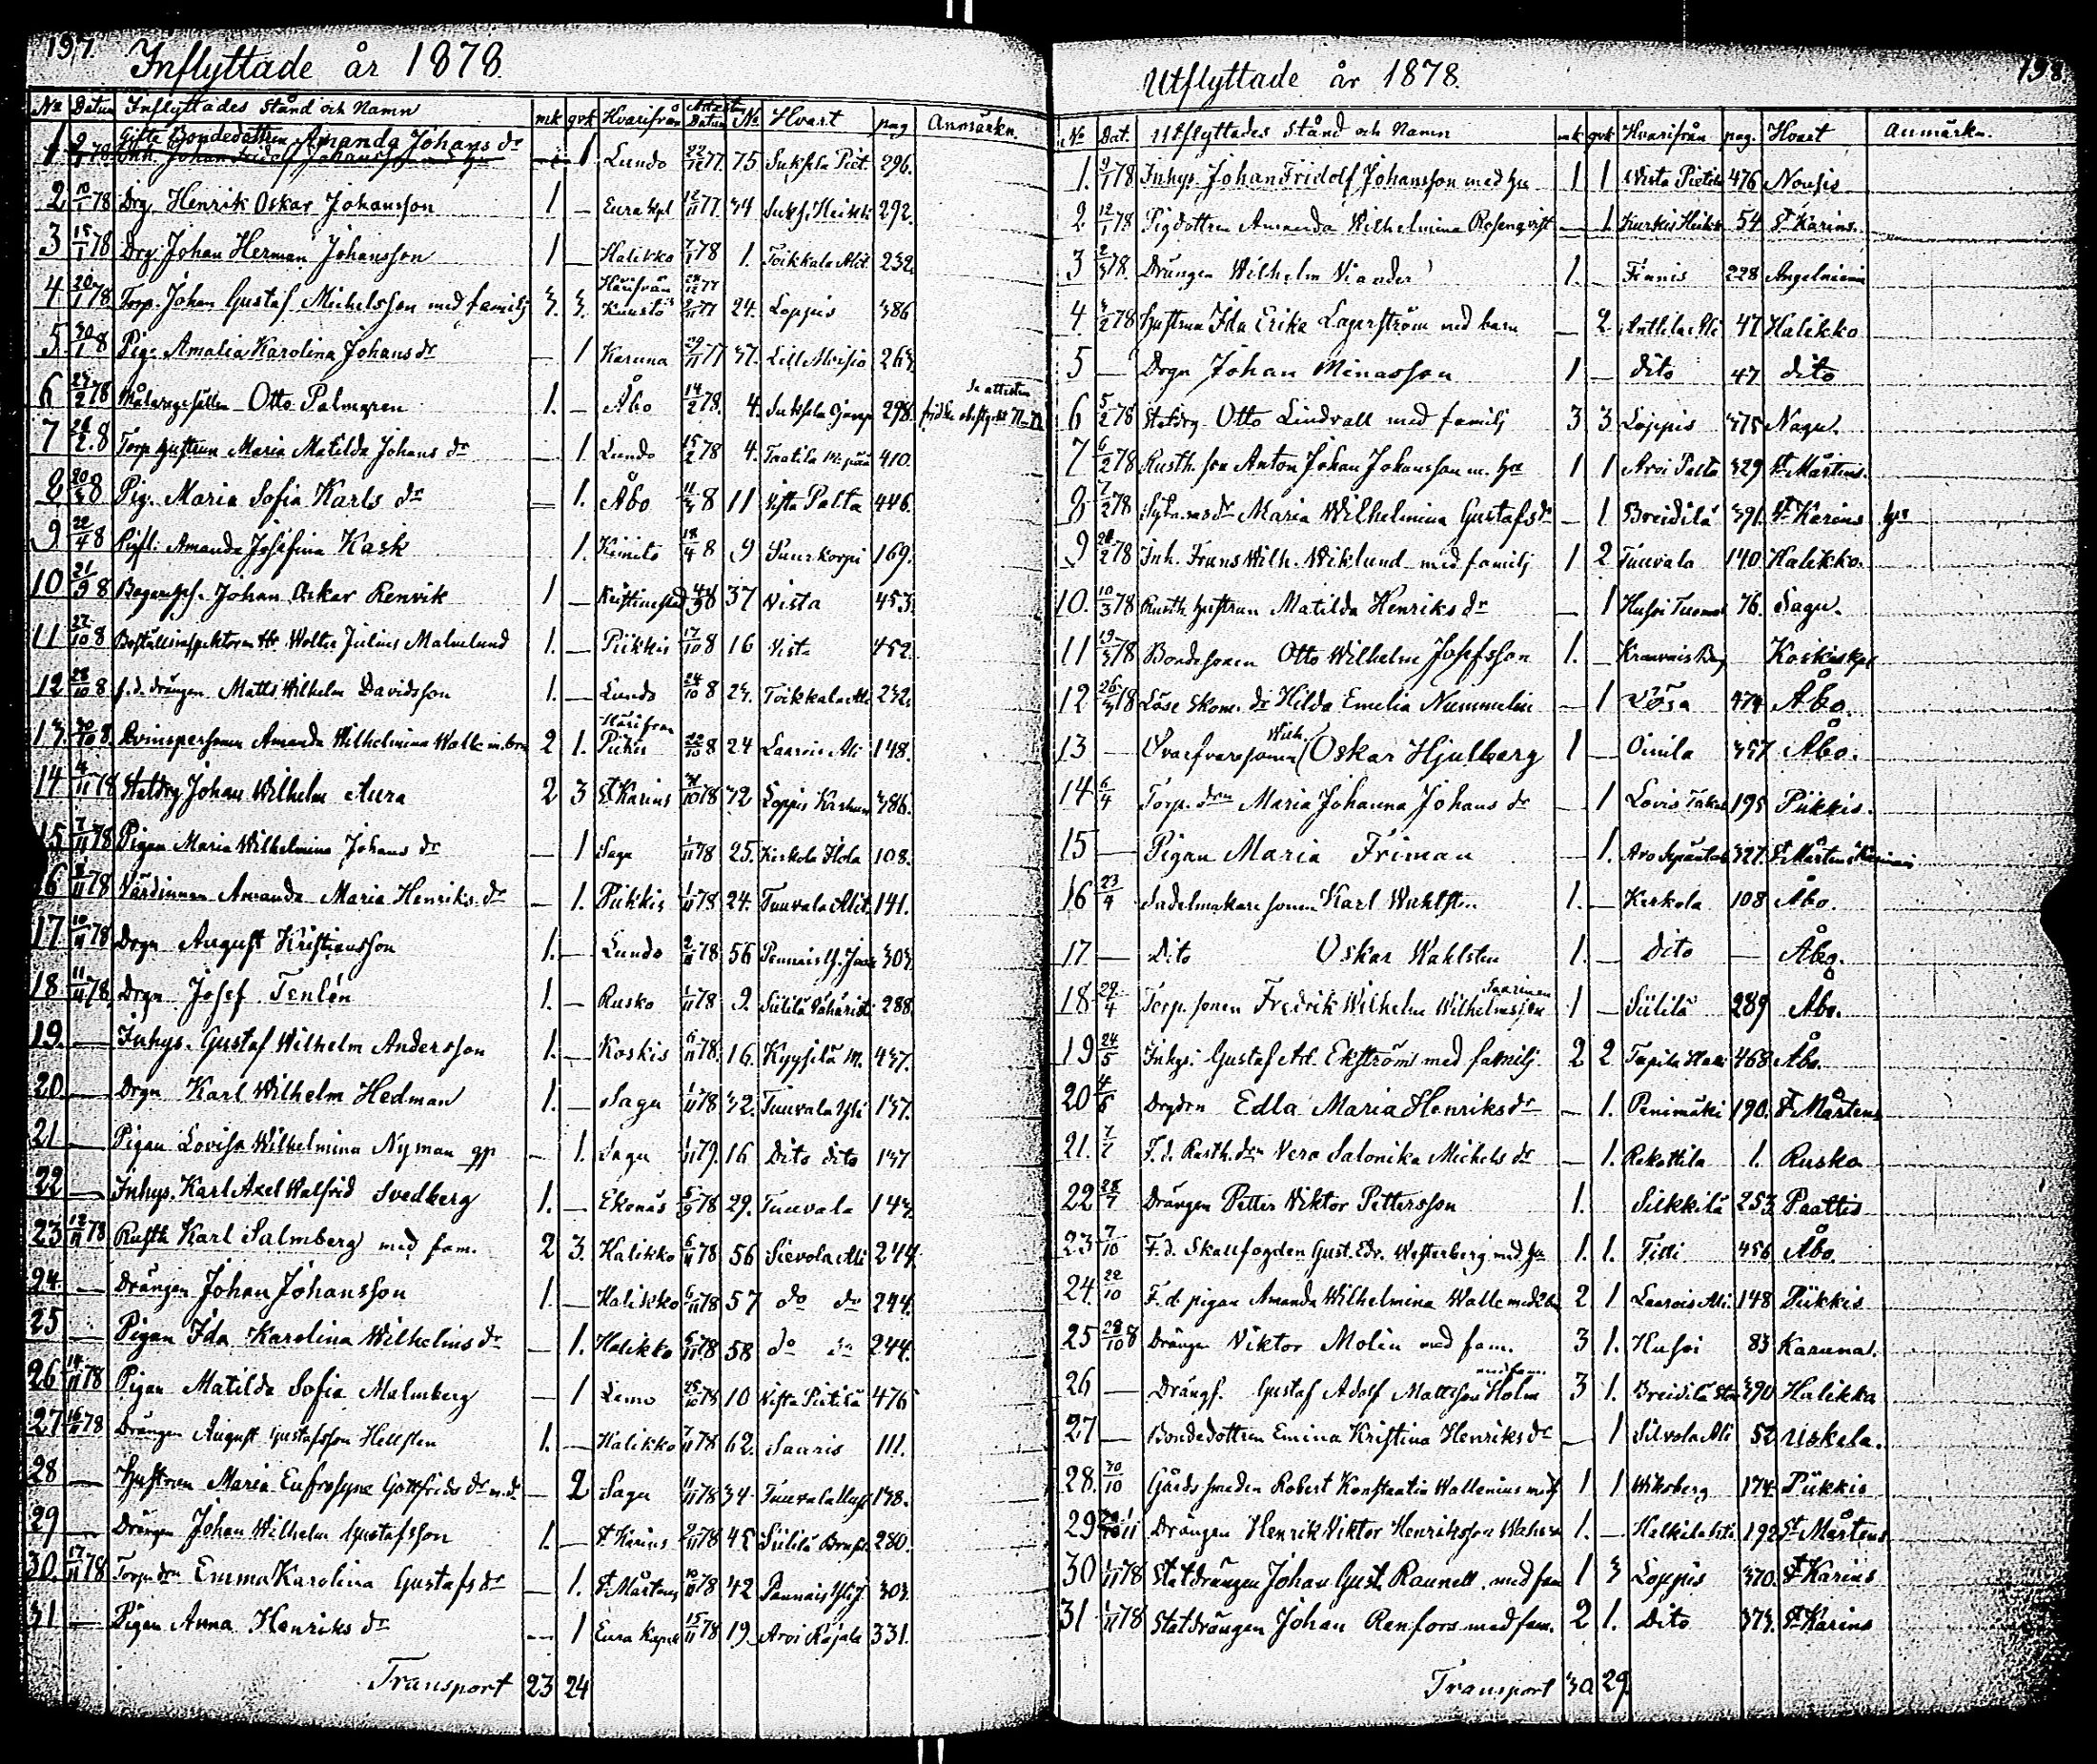 197.
Inflyttade år 1878.
No Datum Inflyttades Stånd och Namn mk qvk Hvarifrån Attestens Datum No Hvart pag Anmärkn.
Gifta Bondedottren Amanda Johans dr
1 9/1 78 Inh. Johan Fridolf Johansson med hu — 1 Lundo 22/12 77 75 Suksela Piet. 296.
2 10/1 78 Drg. Henrik Oskar Johansson 1 — Eura kpl 12/11 77 34 Suks. Heikki 292.
3 15/1 78 Drg. Johan Herman Johansson 1 — Halikko 7/1 78 1. Toikkala Alit. 232.
4 20/1 78 Torp. Johan Gustaf Michelsson med familj 3. 3. Härifrån Kuustö 24. Loppis 386
5 30/1 8 Pig. Amalia Karolina Johans dr — 1 Karuna 29/11 77 37. Lill Moisio 263.
6 27/2 78 Målaregesällen Otto Palmgren 1. — Åbo 14/2 78. 4. Suksela 298.
7 28/2 8 Torp hustrun Maria Matilda Johans dr — 1 Lundo 15/2 78 4. Taatila 410.
8 20/3 8 Pig. Maria Sofia Karls dr — 1. Åbo 11/3 8 11 Vista Palta 446.
9. 22/4 8 Amanda Josefina Kask 1. Kimito 18/4 8 9 Suurkorpi 169.
10 21/9 8 Bagaregs. Johan Oskar Renvik 1 — Kristinestad 8 37 Vista 453.
11 22/10 8 Boställsinspektoren Hr Wolter Julius Malmlund 1. — Piikkis 17/10 8 16 Vista 452.
12 28/10 8 f.d. drängen Matts Wilhelm Davidsson 1. — Lundo 24/10 8 23. Toikkala Ali 232.
13. 30/10 8 Qvinspersonen Amanda Wilhelmina Walle m. brn 2 1. Härifrån Pickis 22/10 8 24 Laarois Ali 148.
14 4/11 78 Statdrg Johan Wilhelm Aura 2 3 St Karins 31/10 78 72 Loppis 386.
15 7/11 78 Pigan Maria Wilhelmina Johans dr — 1 Sagu 1/11 78 25. Kerkola Hola 108.
16 8/11 78 Värdinnan Amanda Maria Henriks dr — 1. Piikkis 1/11 78 24. Tuuvala Alit. 141.
17. 10/11 78 Drgn August Kristiansson 1. — Lundo 2/11 78 56 Pennais 303.
18 11/11 78 Drgn Josef Tenlén 1. — Rusko 1/11 78 9. Siililä Vähäristi 288.
19. — Inhys. Gustaf Wilhelm Andersson 1. — Koskis 6/11 78. 16. Kyysilä M. 437.
20 — Drgn Karl Wilhelm Hedman 1. — Sagu 1/11 78 32. Tuuvala Yli 137.
21 — Pigan Lovisa Wilhelmina Nyman — 1. Sagu 79. 16 Dito dito 137
22 — Inhys. Karl Axel Walfrid Svedberg 1. — Ekenäs 5/9 78 29. Tuuvala 143.
23 12/11 78 Rusth Karl Salmberg med fam. 2 3. Halikko 6/11 78 56 Sievola Ali 244.
24. — Drängen Johan Johansson 1. — Halikko 6/11 78 57 do do 244.
25 — Pigan Ida Karolina Wilhelms dr — 1. Halikko 6/11 78 58 do do 244.
26 14/11 78 Pigan Matilda Sofia Malmberg — 1 Lemo 25/10 78 10 Vista Pietilä 476
27 16/11 78 Drängen August Gustafsson Hellsten 1. — Halikko 7/11 78 62. Saaris 111.
28 — Hustrun Maria Eufrosyne Gottfrids dr m. dr — 2 Sagu 78 34 Tuuvala 138.
29 — Drängen Johan Wilhelm Gustafsson 1. — St Karins 2/11 78 45 Siililä 280.
30. 17/11 78 Torp dtn Emma Karolina Gustafs dr — 1. St Mårtens 10/11 78 42 Pannais 303.
31 — Pigan Anna Henriks dr — 1 Eura Kapel 15/11 78 19 Arvi Rajala 331.
Transport 23 24
198
Utflyttade år 1878.
No Dat. Utflyttades Stånd och Namn mk qvk Hvarifrån pag. Hvart Anmärkn.
1. 9/1 78 Inhys. Johan Fridolf Johansson med hu 1 1 Vista Pietilä 476 Nousis
2 12/1 78 Pigdottren Amanda Wilhelmina Rosenqvist — 1. Kurkis Heikk 54 St Karins.
3 2/3 78. Drängen Wilhelm Viander 1. — Finnis 228 Angelniemi
4. 3/2 78 Hustrun Ida Erika Lagerström med barn — 2. Anttila Ali 47 Halikko
5 — Drgn Johan Minasson 1 — dito 47 dito
6 5/2 78 Statdrg Otto Lindvall med familj 3 3 Loppis 375 Nagu.
7 6/2 78 Rusth. son Anton Johan Johansson m. hu 1 1 Arvi Pasto 329 St Mårtens.
8 7/2 78 Maria Wilhelmina Gustafs dr — 1 Breidilä 391 St Karins
9 28/2 78 Inh. Frans Wilh. Wiklund med familj 1 2 Tuuvala 140 Halikko.
10. 10/3 78 Rusth hustrun Matilda Henriks dr — 1 Hussi 76. Sagu.
11 19/3 78 Bondesonen Otto Wilhelm Josefsson 1. — Koskis Kpl
12 26/3 78 Löse Skom. dr Hilda Emelia Nummelin — 1 Lösa 474 Åbo.
13 — Qvarfvaresonen Wilh. Oskar Hjulberg 1 — Oinila 357 Åbo.
14 6/4 Torp. dtn Maria Johanna Johans dr — 1 Lovis 195 Piikkis.
15 — Pigan Maria Friman — 1. 327. St Mårtens
16 23/4 Sadelmakare sonen Karl Wahlsten 1. — Kerkola 108 Åbo.
17 — Dito Oskar Wahlsten 1. — Dito — Åbo.
18 29/4 Torp. sonen Fredrik Wilhelm Wilhelmsson Saarinen 1 — Siililä 289 Åbo.
19 24/5 Inhys. Gustaf Ad. Ekström med familj 2 2 468 Åbo.
20 4/6 Drgdrn Edla Maria Henriks dr — 1. Penimäki 190. St Mårtens
21. 7/7 F.d. Rusth. dtn Vera Salonika Michels dr — 1. Rekottila 1. Rusko
22 28/7 Drängen Petter Wiktor Pettersson 1. Silkkilä 253 Paattis
23 7/10 F.d. Skallfogden Gust. Edv. Westerberg med hu 1. 1. Tilli 456 Åbo.
24. 22/10 F.d. pigan Amanda Wilhelmina Walle med 2 bn 2 1 Laarois Ali 148 Piikkis
25 28/10 8 Dränge Viktor Molin med fam. 3 1. Hussi 83 Karuna.
26 — Drängs. Gustaf Adolf Mattsson Holm med fam. 3 1. Breidilä 390 Halikko
27 — Bondedottren Emina Kristina Henriks dr — 1 Silvola Ali 52 Uskela.
28. 30/10 Gårdssmeden Robert Konstantin Wallenius med f 1 1 Wiksberg 174. Piikkis
29 11 Drängen Henrik Wiktor Henriksson 1. — 192 St Mårtens
30 1/11 78 Statdrängen Johan Gust. Raunell med fam 1 3 Loppis 370. St Karins
31 1/11 78 Statdrängen Johan Renfors med fam. 2 1. Dito 373. St Karins
Transport 30 29.